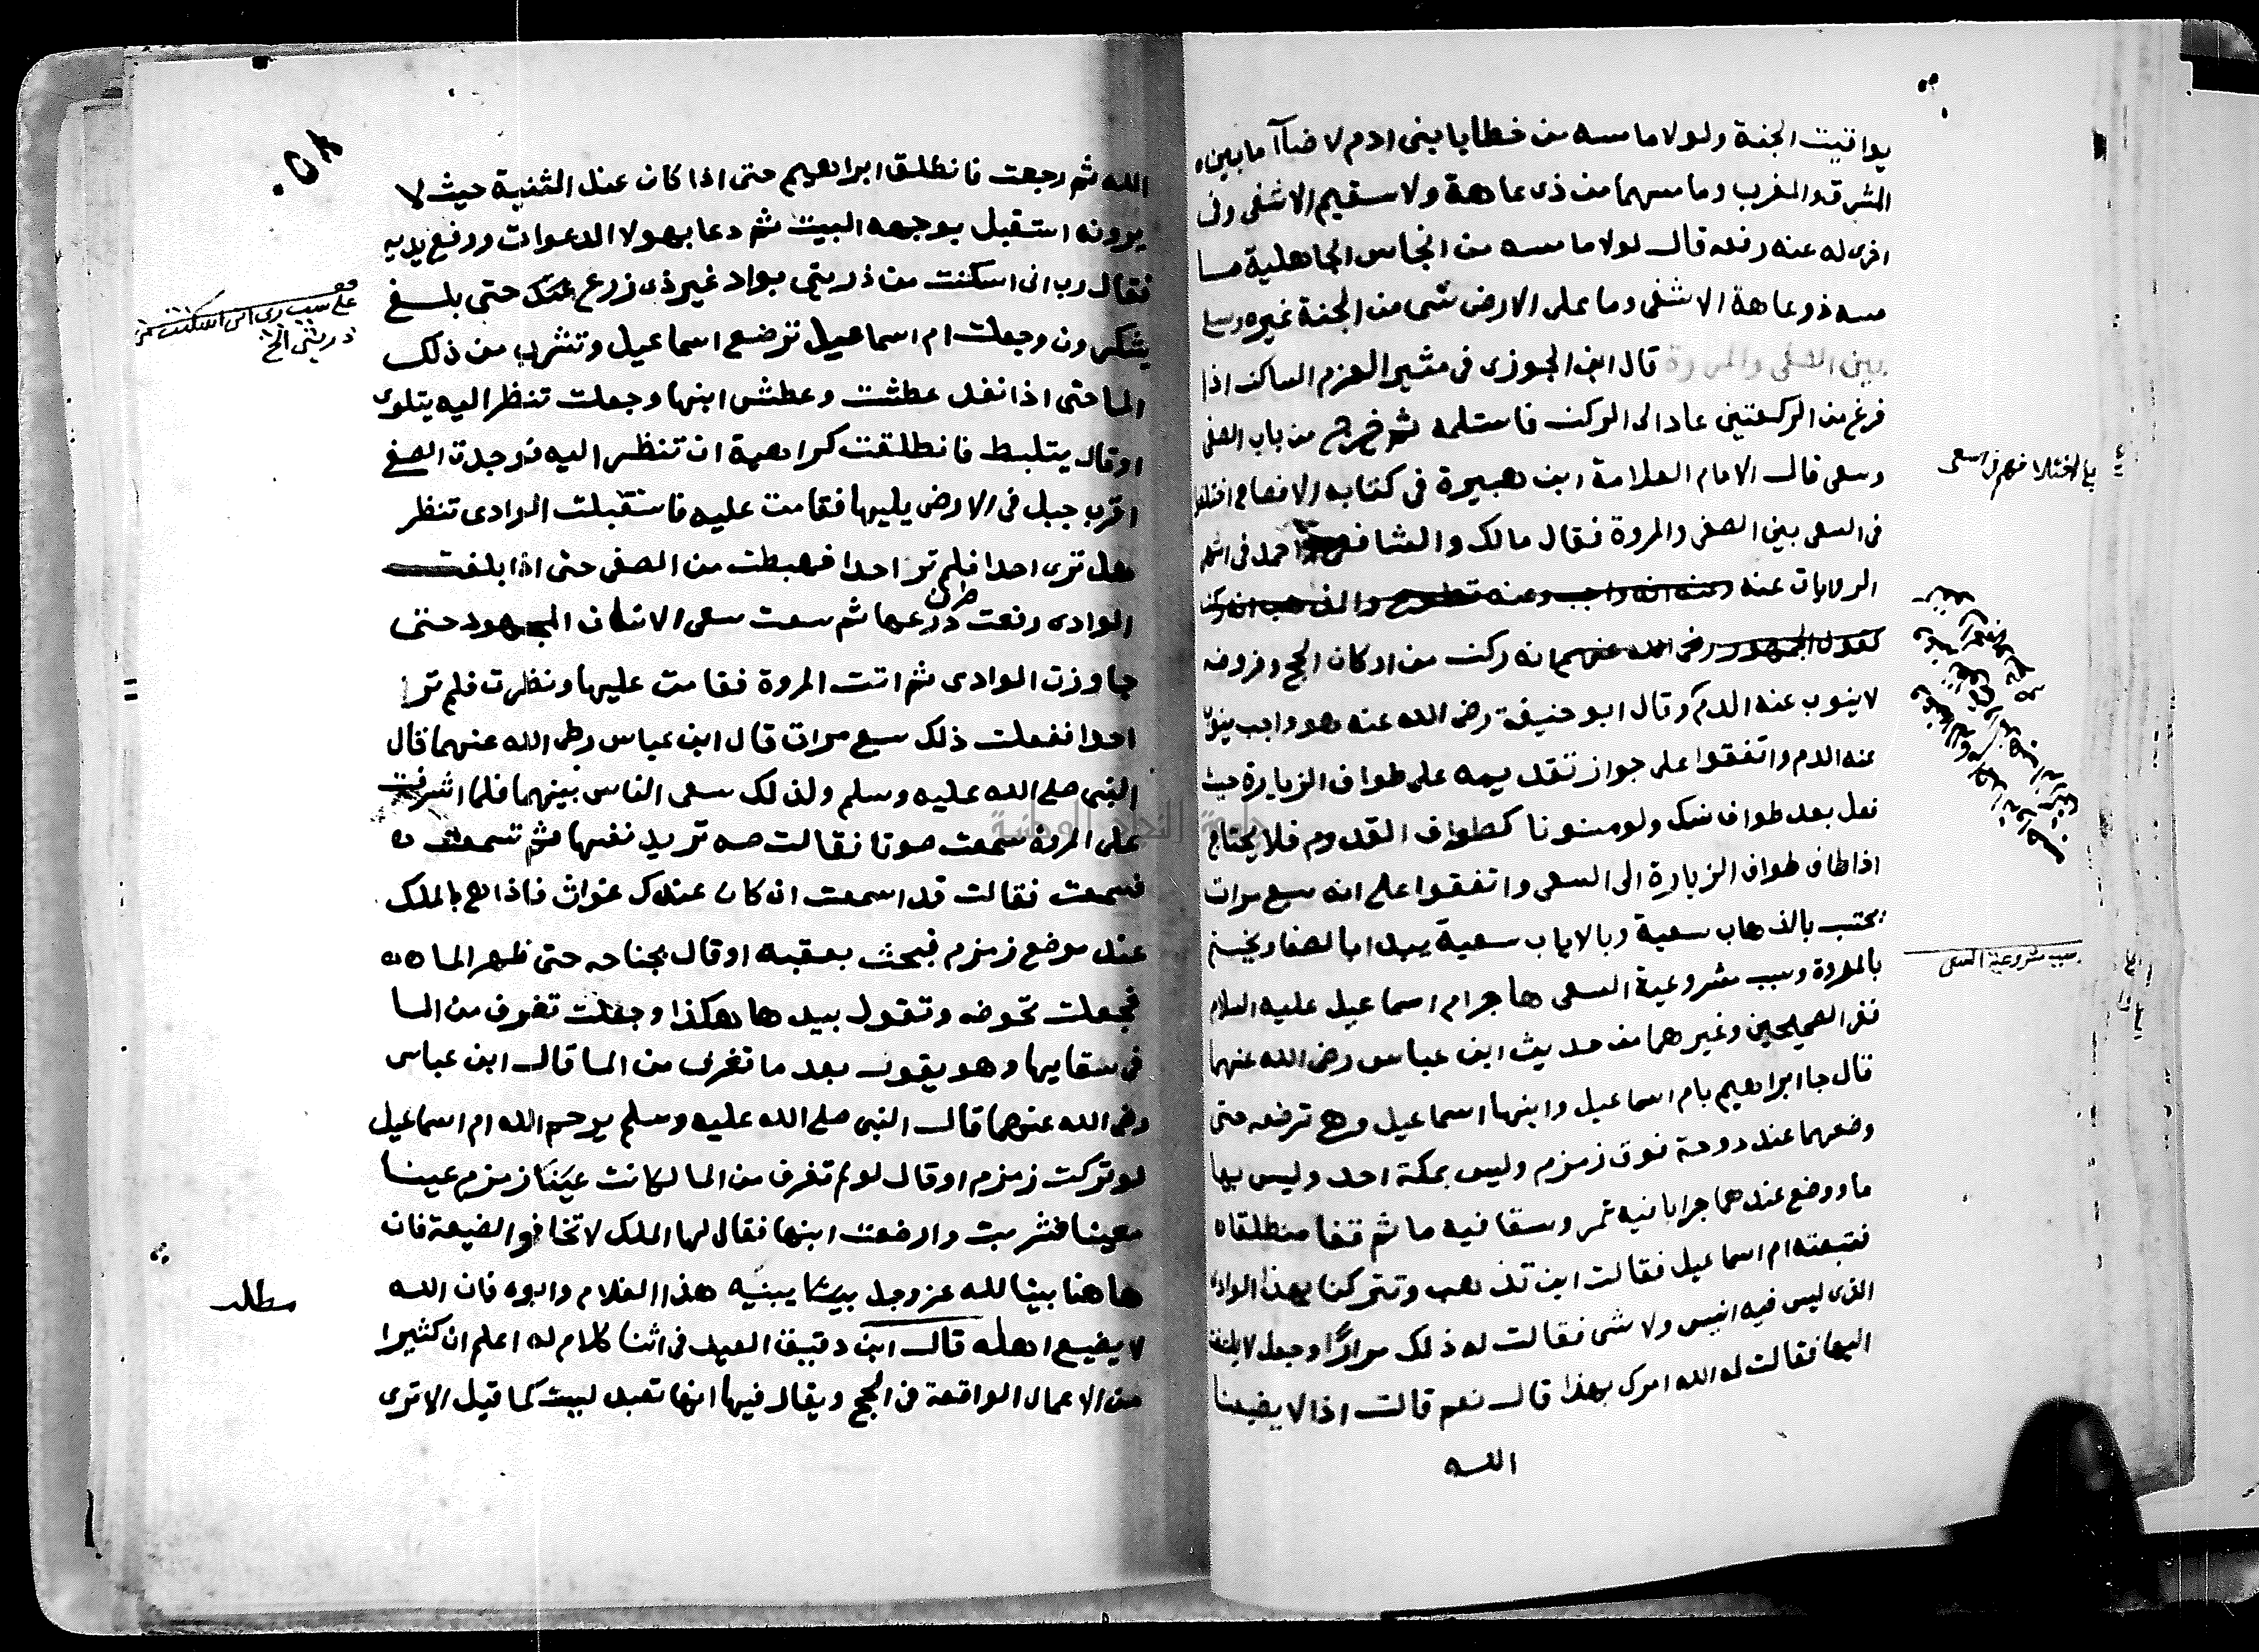 يواقيت الجنة ولولا ما مسه من خطايا بنى ادم لاضآ ما بين
المشرق والمغرب وما مسهما من ذى عاهة ولا سقيم الا شفى وفى
اخرى له عنه رفعه قال لولا ما مسه من انجاس الجاهلية ما
مسه ذو عاهة الا شفى وما على الارض شى من الجنة غيره
بين الصفى والمروة قال ابن الجوزى فى مثير العزم الساكن اذا
فرغ من الركعتين عاد الى الركن فاستلمه ثم خرج من باب الصفى
وسعى قال الامام العلامة ابن هبيرة فى كتابه الافصاح اختلفوا
فى السعى بين الصفى والمروة فقال مالك والشافعى واحمد فى اشهر
الروايات عنه وعنه انه واجب وعنه تطوع والمذهب انه ركن
كقول الجمهور رضى الله عنهم انه ركن من اركان الحج وفروضه
لا ينوب عنه الدم وقال ابو حنيفة رضى الله عنه هو واجب ينوب
عنه الدم واتفقوا على جواز تقديمه على طواف الزيارة حيث
فعل بعد طواف نسك ولو مسنونا كطواف القدوم فلا يحتاج
اذا طاف طواف الزيارة الى السعى واتفقوا على انه سبع مرات
يحتسب بالذهاب سعية وبالاياب سعية يبدا بالصفا ويختم
بالمروة وسبب مشروعية السعى هاجر ام اسماعيل عليه السلام
ففى الصحيحين وغيرهما من حديث ابن عباس رضى الله عنهما
قال جا ابراهيم بام اسماعيل وابنها اسماعيل وهى ترضعه حتى
وضعهما عند دوحة فوق زمزم وليس بمكة احد وليس بها
ما ووضع عندهما جرابا فيه تمر وسقا فيه ما ثم قفا منطلقا
فتبعته ام اسماعيل فقالت اين تذهب وتتركنا بهذا الوادى
الذى ليس فيه انيس ولا شى فقالت له ذلك مرارًا وجعل لا يلتفت
اليها فقالت له الله امرك بهذا قال نعم قالت اذا لا يضيعنا
الله
اختلافهم فى السعى
سبب مشروعية السعى
٥٨
الله ثم رجعت فانطلق ابراهيم حتى اذا كان عند الثنية حيث لا
يرونه استقبل بوجهه البيت ثم دعا بهولا الدعوات ورفع يديه
فقال رب انى اسكنت من ذريتى بواد غير ذى زرع حتى بلغ
يشكرون وجعلت ام اسماعيل ترضع اسماعيل وتشرب من ذلك
الما حتى اذا نفد عطشت وعطش ابنها وجعلت تنظر اليه يتلوى
او قال يتلبط فانطلقت كراهية ان تنظر اليه فوجدت الصفى
اقرب جبل فى الارض يليها فقامت عليه فاستقبلت الوادى تنظر
هل ترى احدا فلم تر احدا فهبطت من الصفى حتى اذا بلغت
الوادى رفعت طرف درعها ثم سعت سعى الانسان المجهود حتى
جاوزت الوادى ثم اتت المروة فقامت عليها ونظرت فلم تر
احدا ففعلت ذلك سبع مرات قال ابن عباس رضى الله عنهما قال
النبى صلى الله عليه وسلم ولذلك سعى الناس بينهما فلما اشرفت
على المروة سمعت صوتا فقالت صه تريد نفسها ثم تسمعت
فسمعت فقالت قد اسمعت ان كان عندك غواث فاذا هى بالملك
عند موضع زمزم فبحث بعقبه او قال بجناحه حتى ظهر الما
فجعلت تحوضه وتقول بيدها هكذا وجعلت تغرف من الما
فى سقايها وهو يفور بعد ما تغرف من الما قال ابن عباس
رضى الله عنهما قال النبى صلى الله عليه وسلم يرحم الله ام اسماعيل
لو تركت زمزم او قال لو لم تغرف من الما لكانت زمزم عينا
معينا فشربت وارضعت ابنها فقال لها الملك لا تخافوا الضيعة فان
هاهنا بيتا لله عز وجل يبنيه هذا الغلام وابوه فان الله
لا يضيع اهله قال ابن دقيق العيد فى اثنا كلام له اعلم ان كثيرا
من الاعمال الواقعة فى الحج ويقال فيها انها تعبد ليست كما قيل الا ترى
على سبب رب انى اسكنت من
ذريتى الخ
مطلب
جامعة النجاح الوطنية